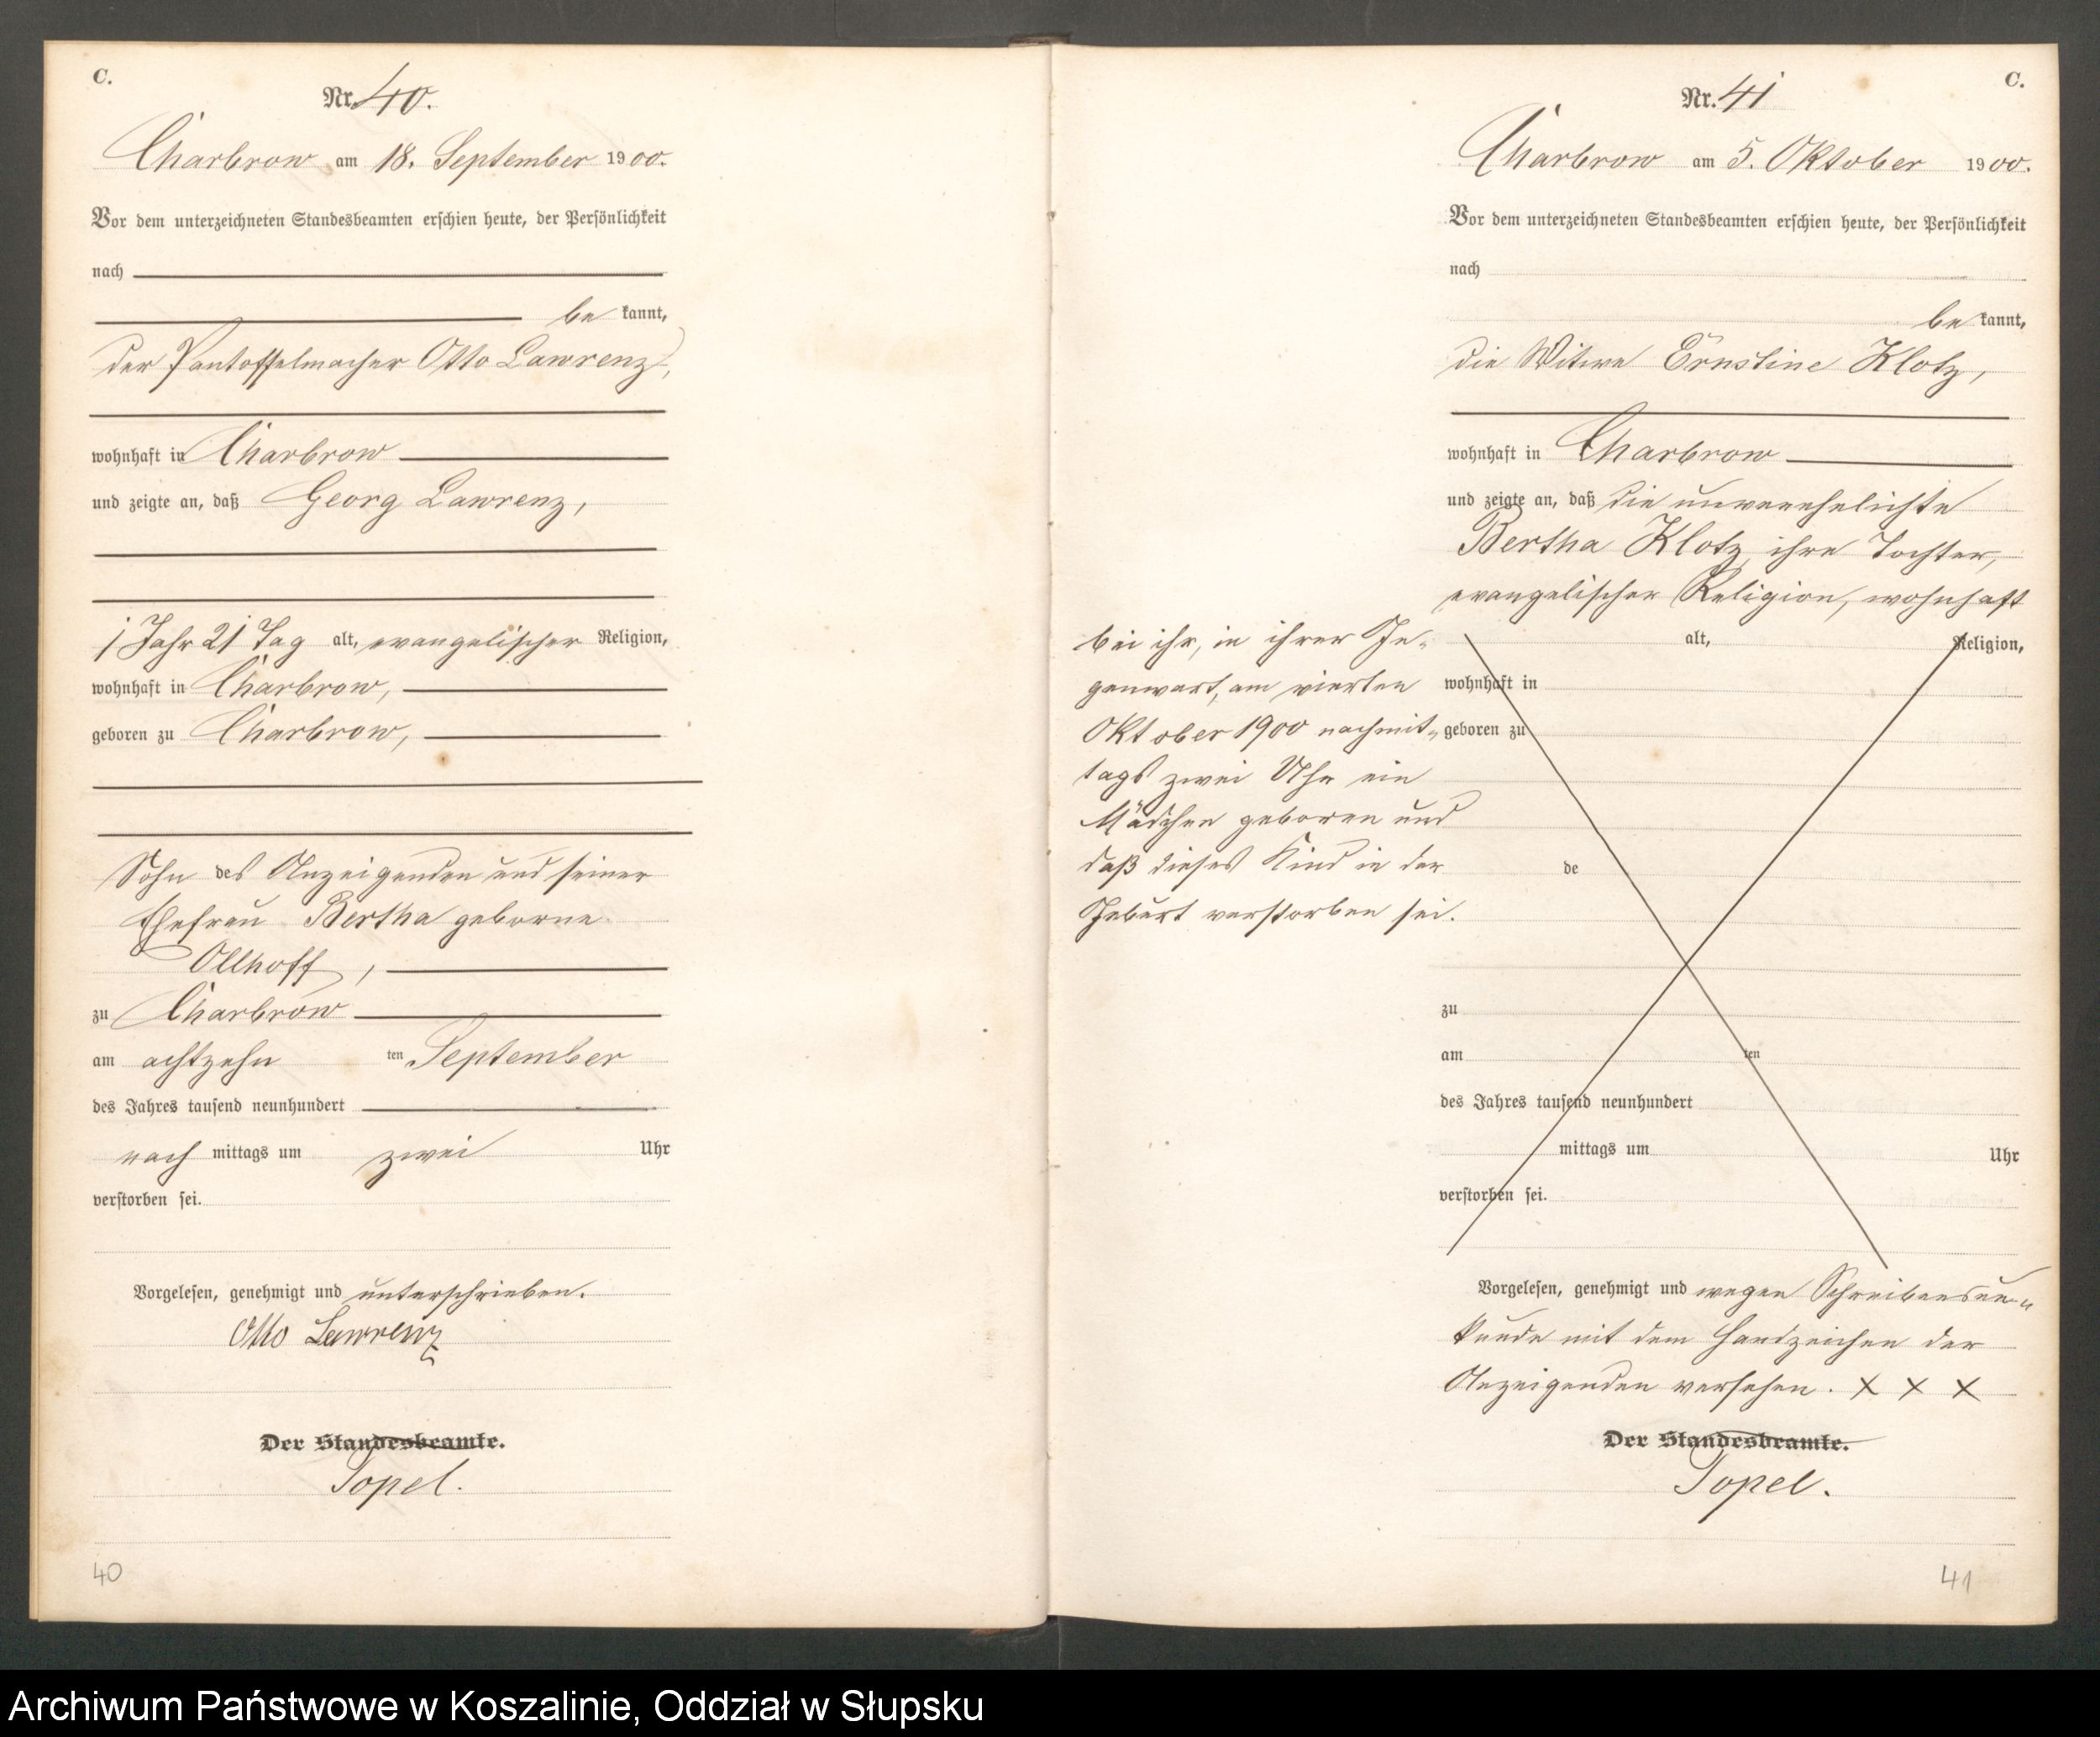 C.
Nr. 40.
Charbrow am 18. September 1900.
Vor dem unterzeichneten Standesbeamten erschien heute, der Persönlichkeit
nach
be kannt,
der Pantoffelmacher Otto Lawrenz,
wohnhaft in Charbrow
und zeigte an, daß Georg Lawrenz,
1 Jahr 21 Tag alt, evangelischer Religion,
wohnhaft in Charbrow,
geboren zu Charbrow,
Sohn des Anzeigenden und seiner
Ehefrau Bertha geborne
Ollhoff,
zu Charbrow
am achtzehn ten September
des Jahres tausend neunhundert
nach mittags um zwei Uhr
verstorben sei.
Vorgelesen, genehmigt und unterschrieben.
Otto Lawrenz
Der Standesbeamte.
Topel.
40
C.
Nr. 41
Charbrow am 5. Oktober 1900.
Vor dem unterzeichneten Standesbeamten erschien heute, der Persönlichkeit
nach
be kannt,
die Witwe Ernstine Klotz,
wohnhaft in Charbrow
und zeigte an, daß die unverehelichte
Bertha Klotz, ihre Tochter,
evangelischer Religion, wohnhaft
bei ihr, in ihrer Ge-
genwart, am vierten
Oktober 1900 nachmit-
tags zwei Uhr ein
Mädchen geboren und
daß dieses Kind in der
Geburt verstorben sei.
alt, Religion,
wohnhaft in
geboren zu
de
zu
am ten
des Jahres tausend neunhundert
mittags um Uhr
verstorben sei.
Vorgelesen, genehmigt und wegen Schreibensun-
kunde mit dem Handzeichen der
Anzeigenden versehen. X X X
Der Standesbeamte.
Topel.
41
Archiwum Państwowe w Koszalinie, Oddział w Słupsku